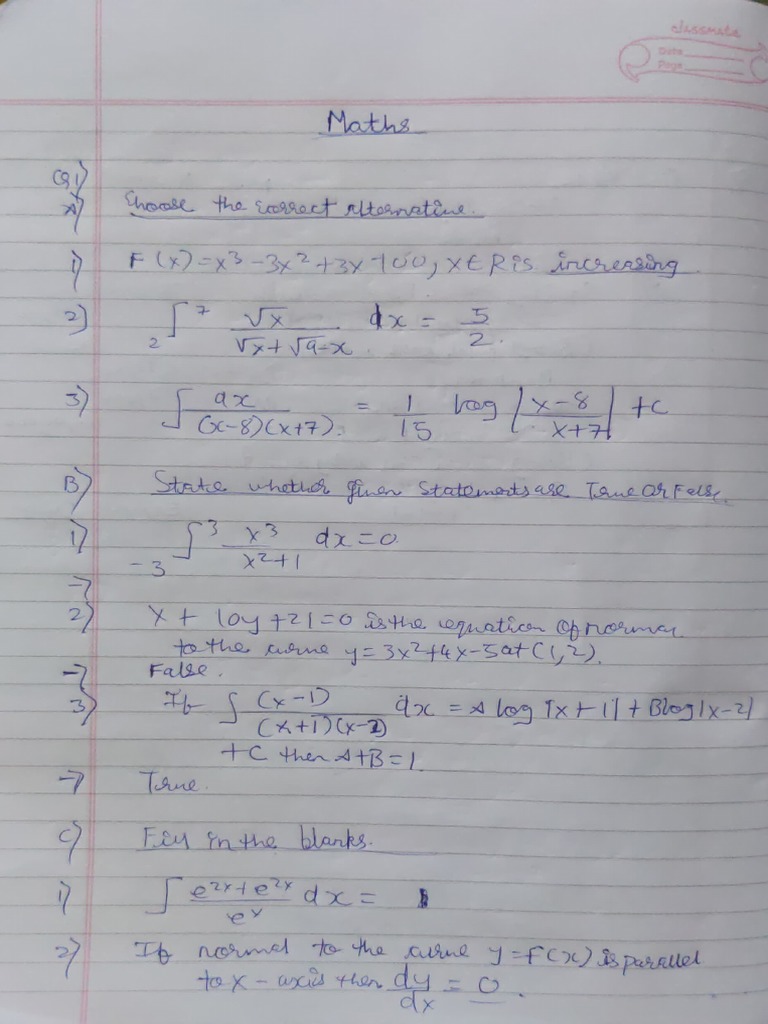 classmate
Date
Page
Maths
Q1)
A) Choose the correct Alternative.
1) F(x) = x³ - 3x² + 3x - 100, x ∈ R is increasing
2) ₂∫⁷ √x / (√x + √9-x) dx = 5/2.
3) ∫ dx / (x-8)(x+7). = 1/15 log |x-8 / x+7| + c
B) State whether given statements are True or False.
1) ₋₃∫³ x³ / (x²+1) dx = 0
→
2) x + 10y + 21 = 0 is the equation of normal
to the curve y = 3x² + 4x - 5 at (1, 2).
→ False.
3) If ∫ (x-1) / (x+1)(x-2) dx = A log |x+1| + B log |x-2|
+ C then A+B = 1.
→ True.
C) Fill in the blanks.
1) ∫ (e²ˣ + e²ˣ) / eˣ dx =
2) If normal to the curve y = F(x) is parallel
to x-axis then dy/dx = 0.